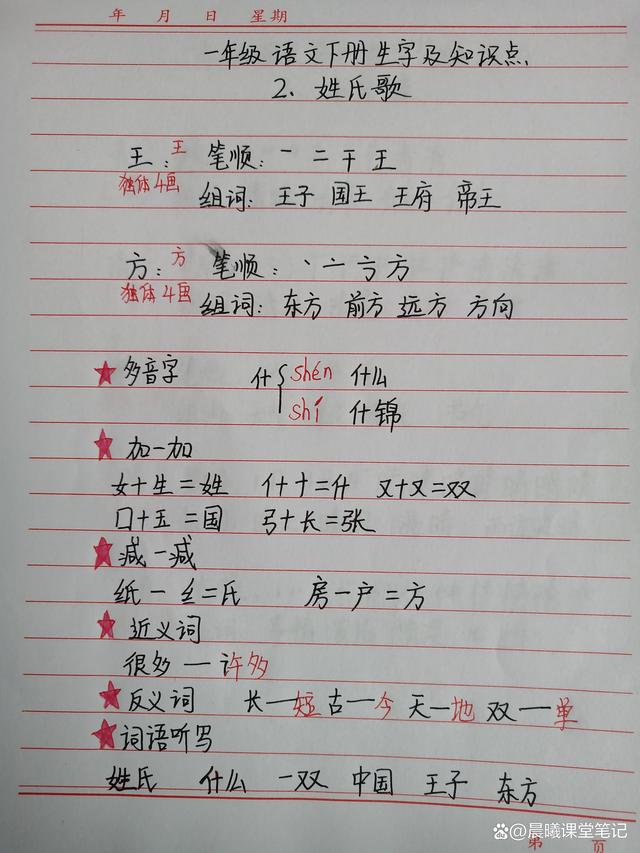 年 月 日 星期
一年级语文下册生字及知识点
2、姓氏歌
王：王 笔顺：一 二 干 王
独体4画 组词：王子 国王 王府 帝王
方：方 笔顺：丶 亠 亐 方
独体4画 组词：东方 前方 远方 方向
★多音字 什{shén 什么
shí 什锦
★加一加
女+生=姓 亻+十=什 又+又=双
口+五=国 弓+长=张
★减一减
纸一纟=氏 房一户=方
★近义词
很多一许多
★反义词 长一短 古一今 天一地 双一单
★词语听写
姓氏 什么 一双 中国 王子 东方
第 页
@晨曦课堂笔记